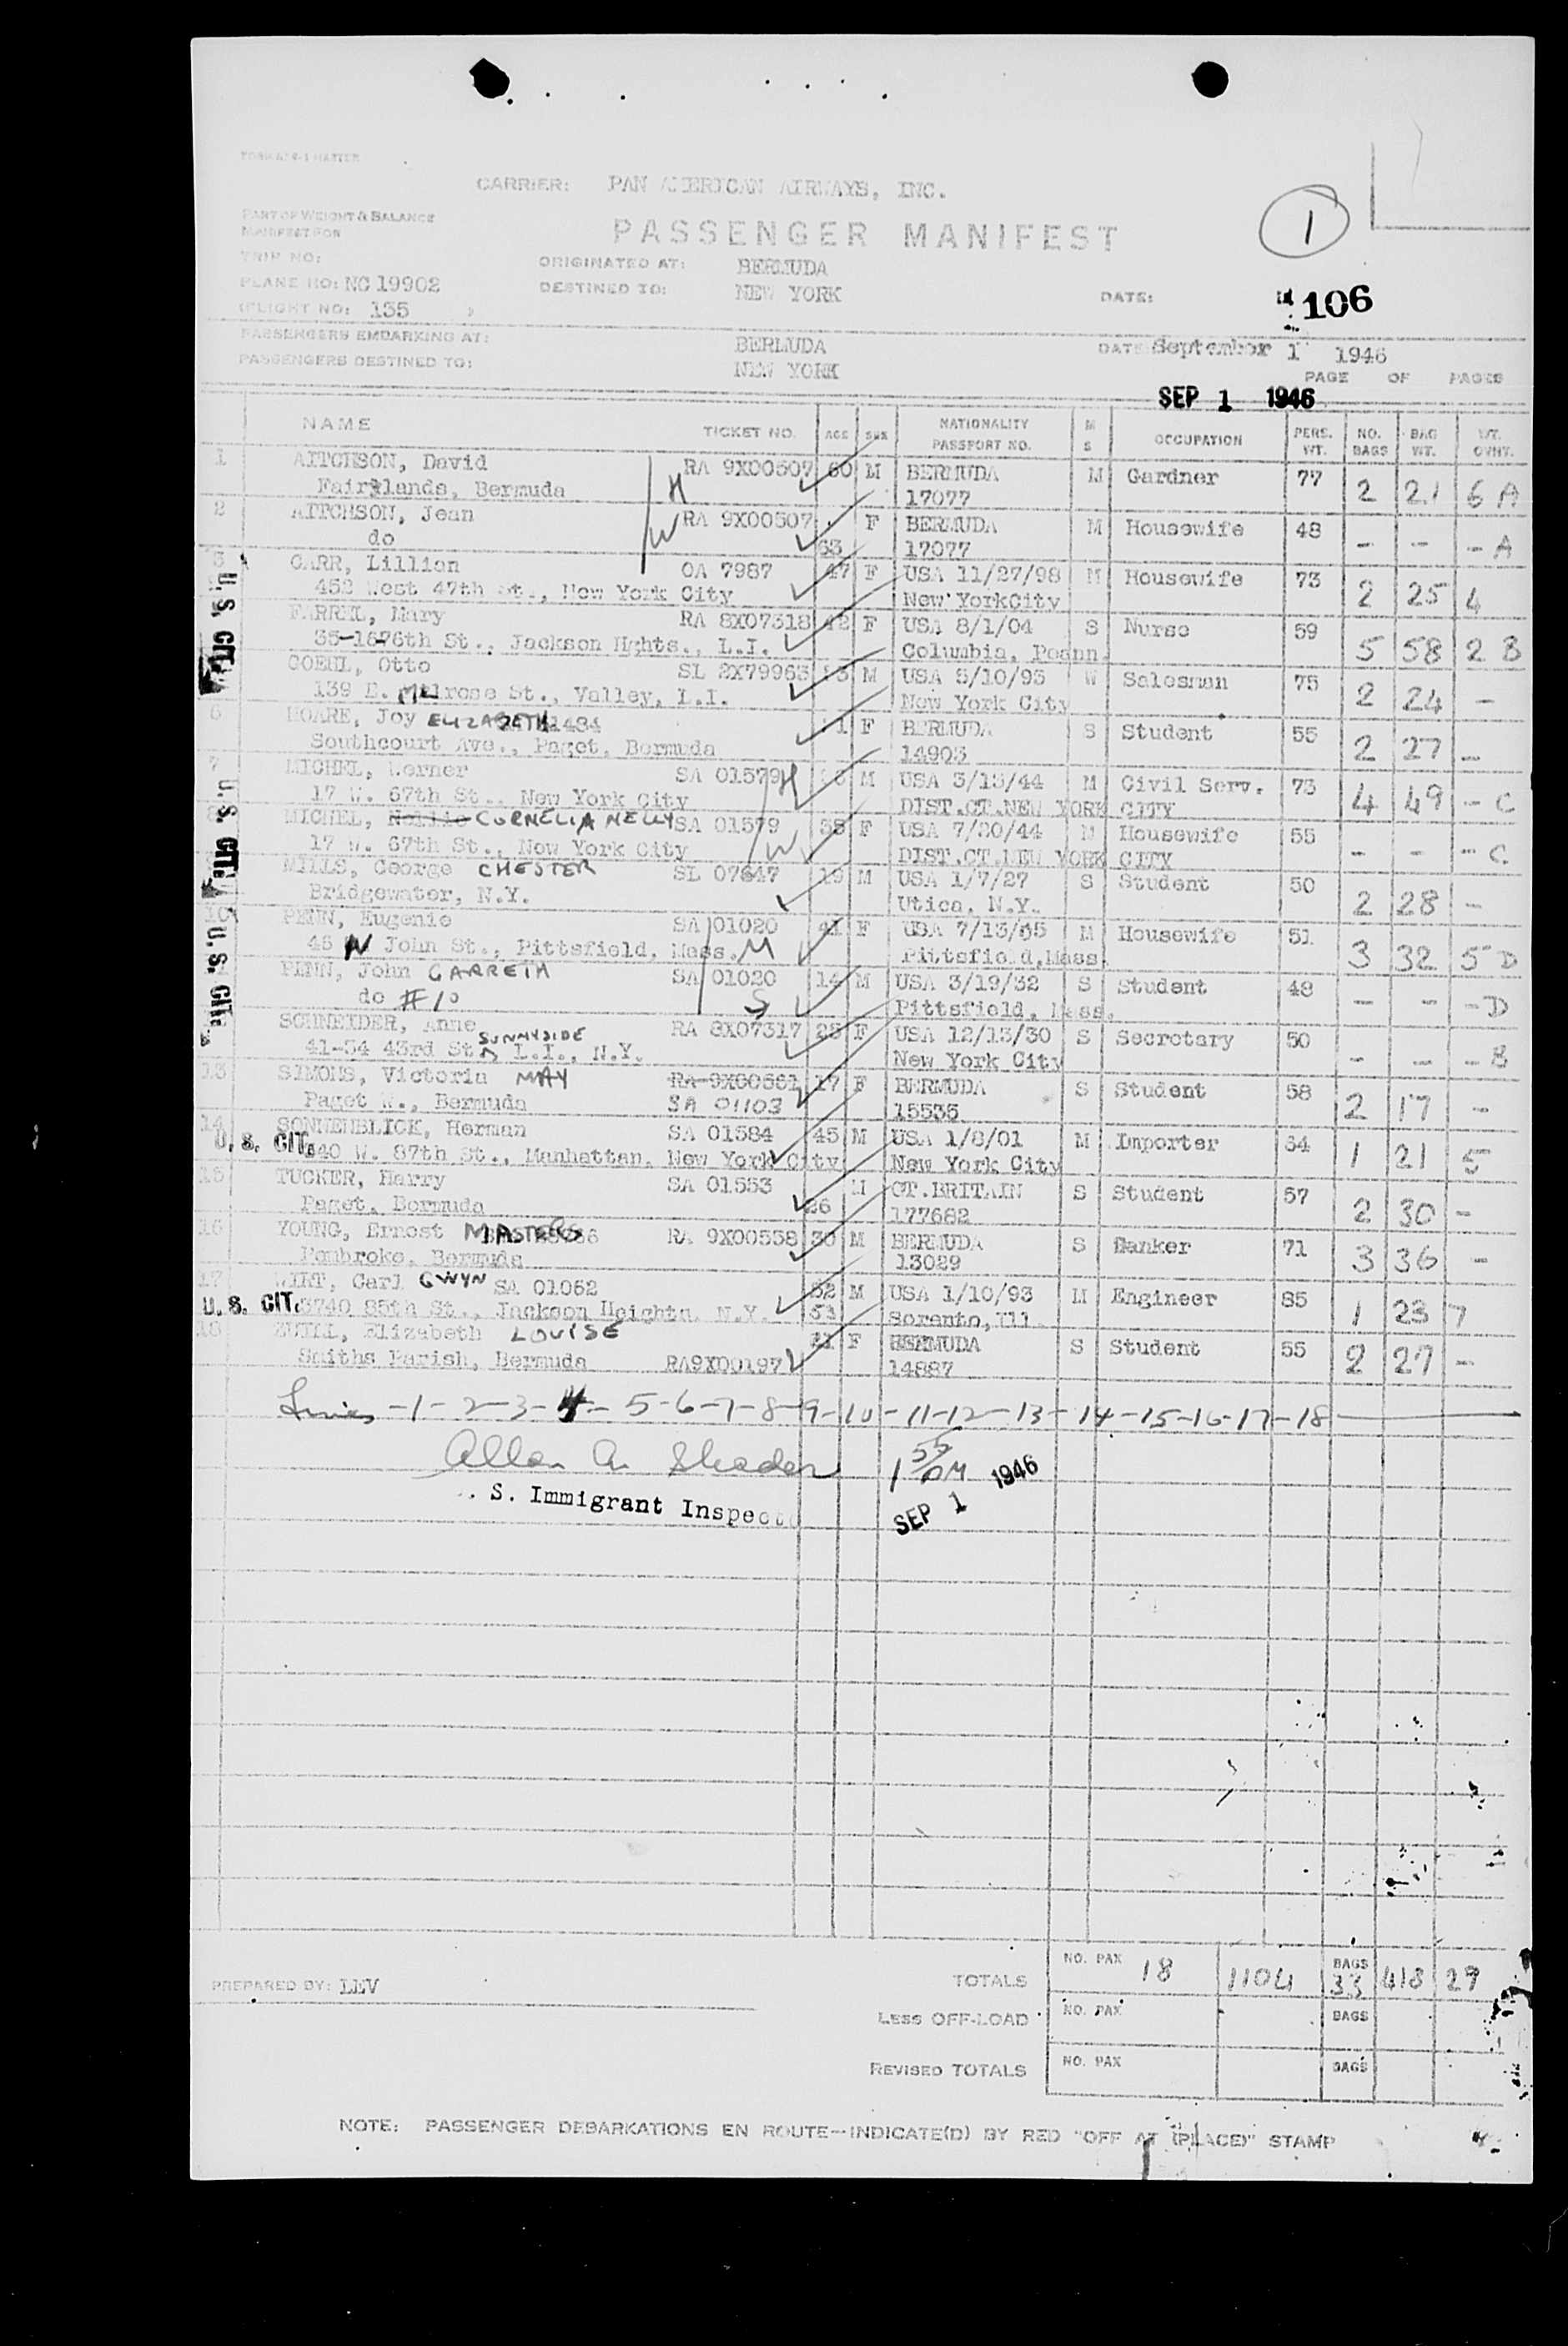 CARRIER: PAN AMERICAN AIRWAYS, INC.
PART OF WEIGHT & BALANCE
MANIFEST FOR
PASSENGER MANIFEST
1
TRIP NO:
ORIGINATED AT: BERMUDA
PLANE NO: NC 19902
DESTINED TO: NEW YORK
DATE: 106
FLIGHT NO: 155
PASSENGERS EMBARKING AT: BERMUDA
DATE September 1 1946
PASSENGERS DESTINED TO: NEW YORK
PAGE OF PAGES
SEP 1 1946
NAME TICKET NO. AGE SEX NATIONALITY PASSPORT NO. M S OCCUPATION PERS. WT. NO. BAGS BAG WT. WT. OVWT.
1 AITCHSON, David RA 9X00507 60 M BERMUDA M Gardner 77 2 21 6 A
Fairylands, Bermuda H 17077
2 AITCHSON, Jean RA 9X00507 F BERMUDA M Housewife 48 - - - A
do W 63 17077
3 CARR, Lillian OA 7987 47 F USA 11/27/98 M Housewife 73 2 25 4
452 West 47th St., New York City New YorkCity
FARREL, Mary RA 8X07318 42 F USA 8/1/04 S Nurse 59 5 58 2 B
35-1676th St., Jackson Hghts., L.I. Columbia, Peann.
GOEHL, Otto SL 2X79963 53 M USA 5/10/93 W Salesman 75 2 24 -
139 E. Melrose St., Valley, L.I. New York City
6 HOARE, Joy ELIZABETH 1484 F BERMUDA S Student 55 2 27 -
Southcourt Ave., Paget, Bermuda 14903
7 MICHEL, Werner SA 01579 H M USA 3/13/44 M Civil Serv. 73 4 49 - C
17 W. 67th St., New York City DIST.CT.NEW YORK CITY
8 MICHEL, Nellie CORNELIA NELLY SA 01579 38 F USA 7/20/44 M Housewife 55 - - - C
17 W. 67th St., New York City W DIST.CT.NEW YORK CITY
MILLS, George CHESTER SL 07647 19 M USA 1/7/27 S Student 50 2 28 -
Bridgewater, N.Y. Utica, N.Y.
10 PENN, Eugenie SA 01020 41 F USA 7/13/05 M Housewife 51 3 32 5 D
46 N John St., Pittsfield, Mass. M Pittsfield, Mass.
PENN, John GARRETH SA 01020 14 M USA 3/19/32 S Student 48 - - - D
do #10 S Pittsfield, Mass.
SCHNEIDER, Anne RA 8X07317 25 F USA 12/13/30 S Secretary 50 - - - B
41-54 43rd St SUNNYSIDE L.I., N.Y. New York City
13 SIMONS, Victoria MAY RA 9X00561 17 F BERMUDA S Student 58 2 17 -
Paget W., Bermuda SA 01103 15535
14 SONNENBLICK, Herman SA 01584 45 M USA 1/8/01 M Importer 64 1 21 5
U. S. CIT. 340 W. 87th St., Manhattan, New York City New York City
15 TUCKER, Harry SA 01553 M GT.BRITAIN S Student 57 2 30 -
Paget, Bermuda 26 177682
16 YOUNG, Ernest MASTERS RA 9X00558 30 M BERMUDA S Banker 71 3 36 -
Pembroke, Bermuda 13029
17 WIRT, Carl GWYN SA 01062 52 M USA 1/10/93 M Engineer 85 1 23 7
U. S. CIT. 3740 85th St., Jackson Heights, N.Y. 53 Soranto, Ill.
18 ZUILL, Elizabeth LOUISE 21 F BERMUDA S Student 55 2 27 -
Smiths Parish, Bermuda RA9X00197 14887
U. S. CIT.
U. S. CIT.
U. S. CIT.
Lines -1-2-3-4-5-6-7-8-9-10-11-12-13-14-15-16-17-18
Allan A. Shader 1 55 PM SEP 1 1946
. S. Immigrant Inspecto
PREPARED BY: LEV
TOTALS NO. PAX 18 1104 BAGS 33 418 29
LESS OFF-LOAD NO. PAX BAGS
REVISED TOTALS NO. PAX BAGS
NOTE: PASSENGER DEBARKATIONS EN ROUTE—INDICATE(D) BY RED "OFF AT (PLACE)" STAMP